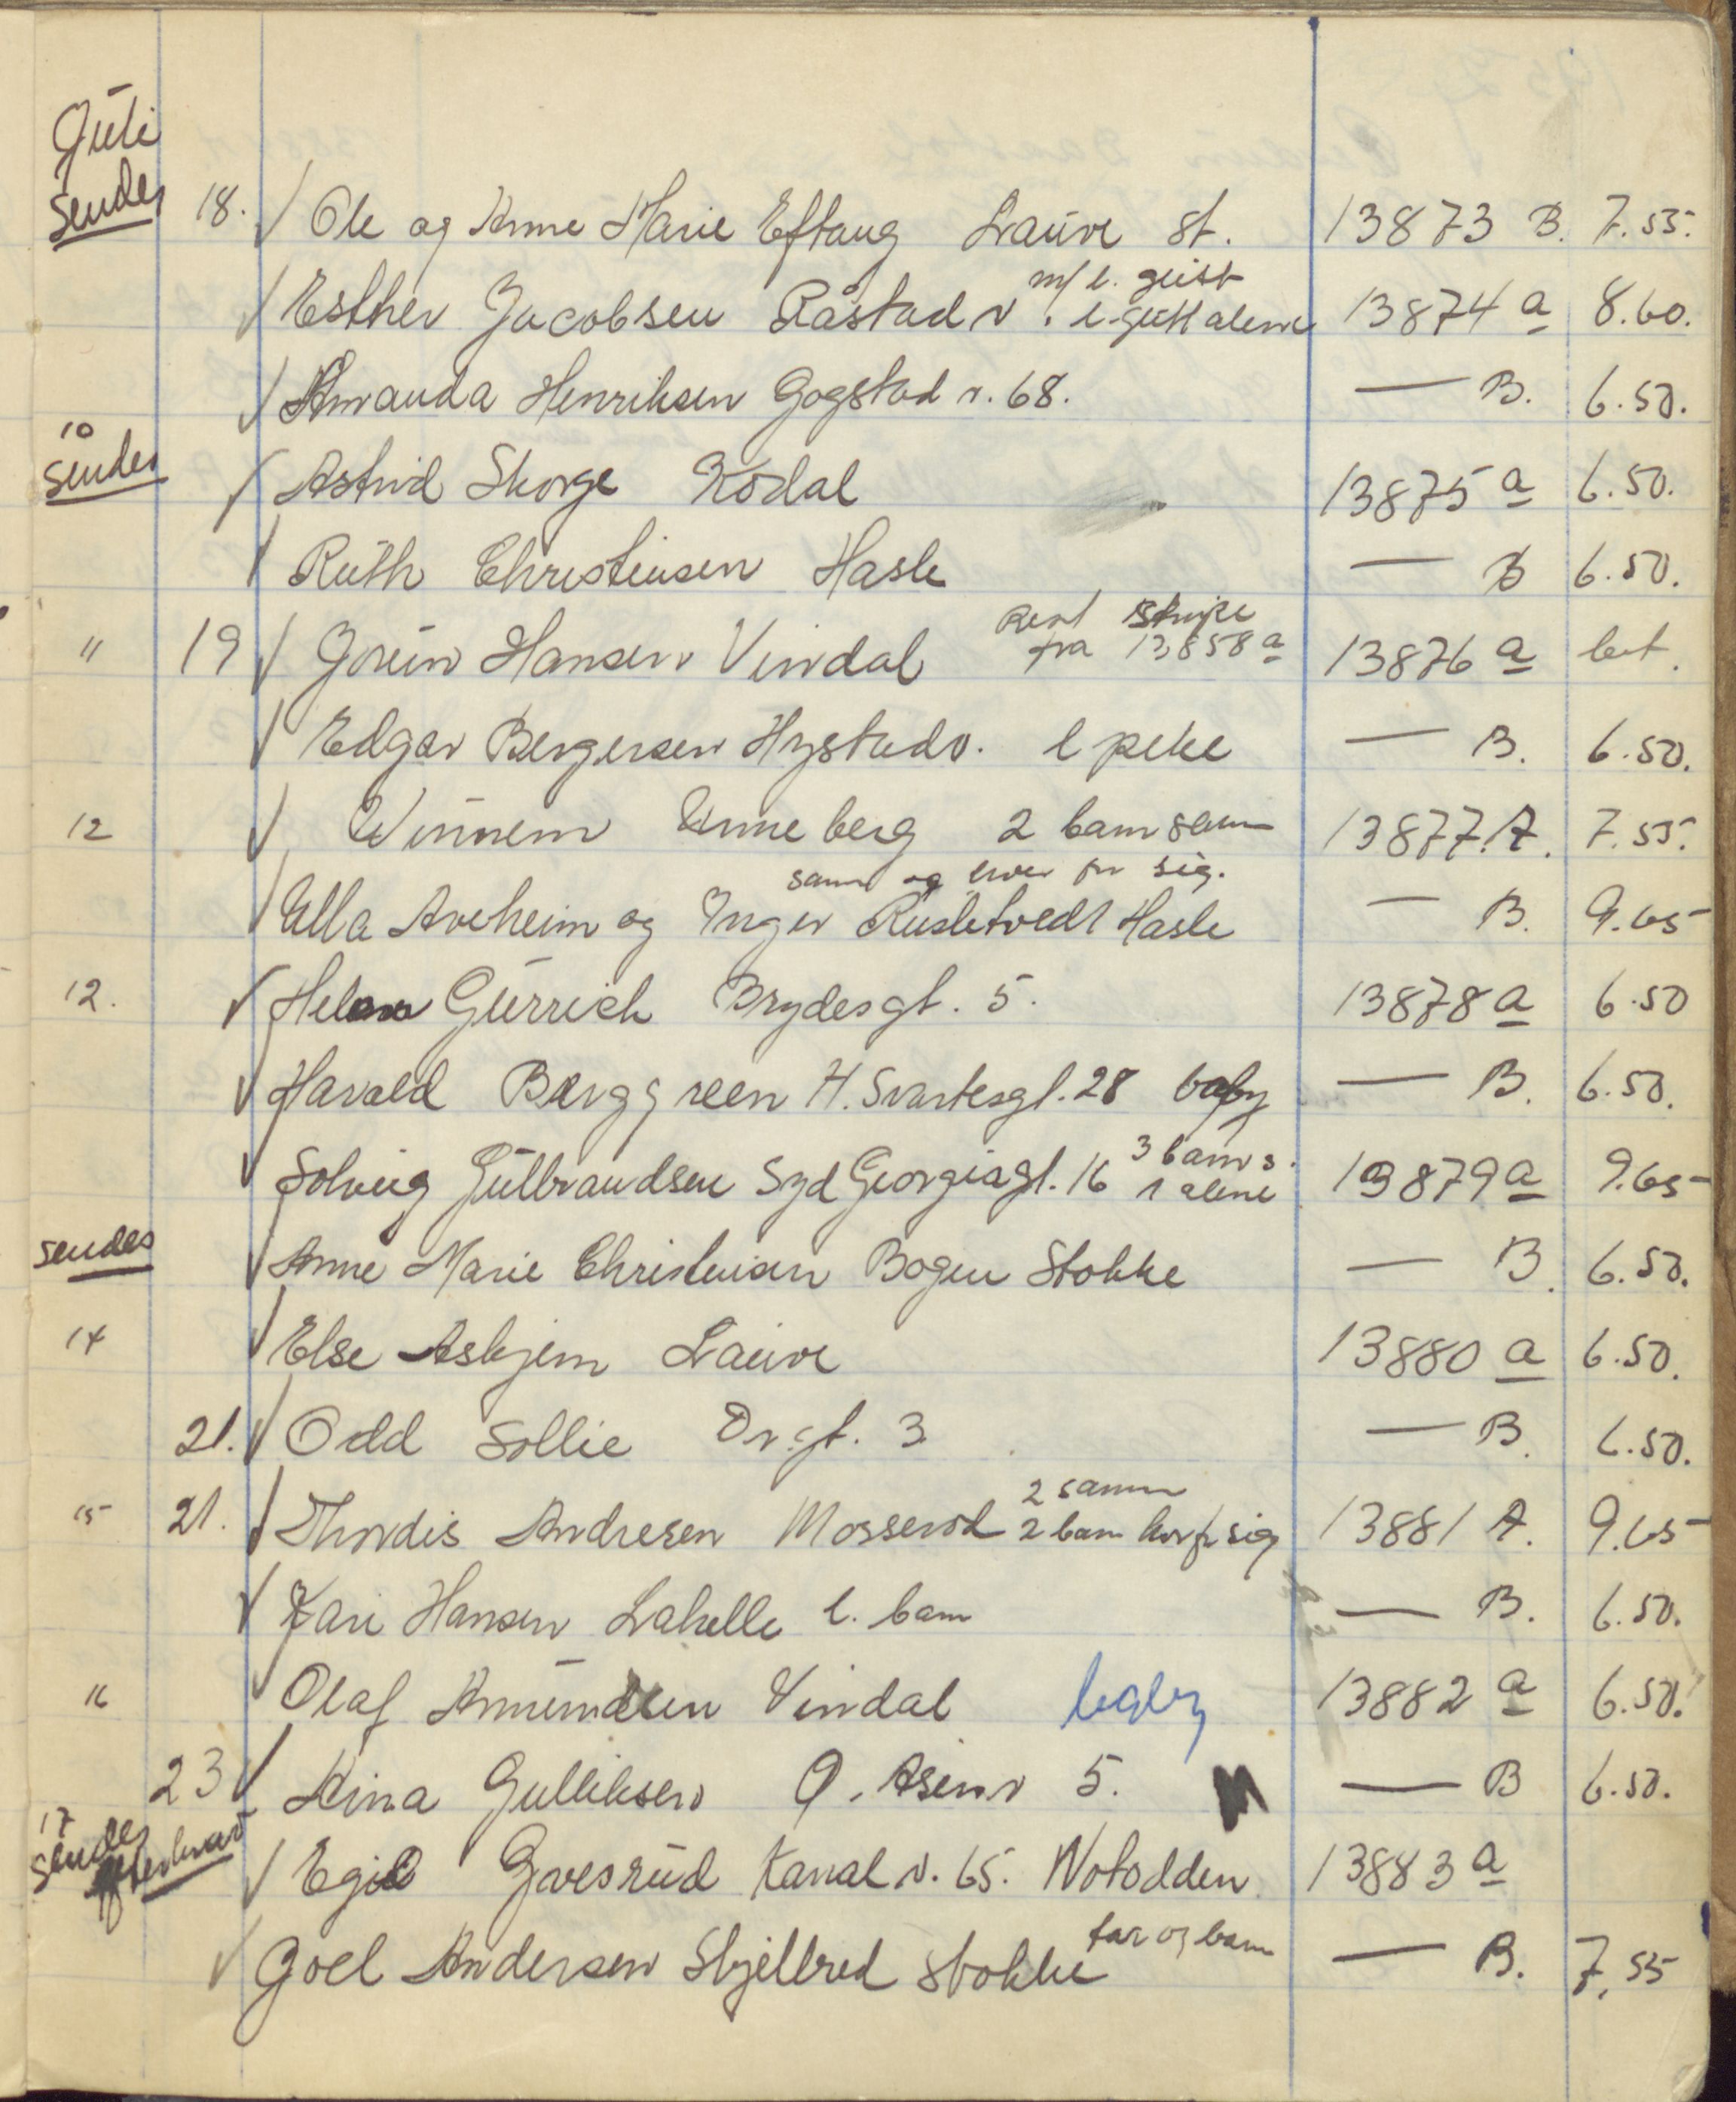 Juli
sendes 18. √ Ole og Anne Marie Eftang Lauve st. 13873 B. 7.55.
m/ l. gutt
√ Esther Jacobsen Råstad v. l. gutt alene 13874 a 8.60.
√ Amanda Henriksen Gogstad v. 68. — B. 6.50.
10
sendes √ Astrid Skorge Kodal 13875 a 6.50.
√ Ruth Christensen Hasle — B 6.50.
Rest
" 19 √ Jorun Hansen Vindal fra 13858 a 13876 a bet.
√ Edgar Bergersen Hystadv. l pike — B. 6.50.
12 √ Winnem Unneberg 2 barn sam 13877 A. 7.55.
sam og hver for sig.
√ Ella Aroheim og Inger Rusletvedt Hasle — B. 9.65
12. √ Helene Gurrich Brydesgt. 5. 13878 a 6.50
√ Harald Berggreen H. Svartesgt. 28 baby — B. 6.50.
3 barn s.
√ Solveig Gulbrandsen Syd Georgiagt. 16 1 alene 13879 a 9.65
sendes √ Anne Marie Christensen Bogen Stokke — B. 6.50.
14 √ Else Askjem Lauve 13880 a 6.50.
21. √ Odd Sollie Dr.gt. 3 — B. 6.50.
2 samm
15 21. √ Thordis Andresen Mosserød 2 barn hver f sig 13881 A. 9.65
√ Kari Hansen Lahelle l. barn — B. 6.50.
16 √ Olaf Amundsen Vindal baby 13882 a 6.50.
23 √ Mina Gulliksen Ø. Åsenv 5. — B 6.50.
17
sendes efterkrav √ Egil Gavesrud Kanal v. 65. Notodden 13883 a
far og barn
√ Joel Andersen Skjellbred Stokke — B. 7.55